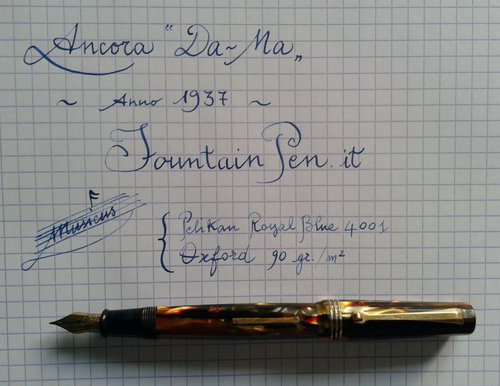 Ancora "Da~Ma„
~ Anno 1937 ~
FountainPen.it
Musicus
Pelikan Royal Blue 4001
Oxford 90 gr./m²